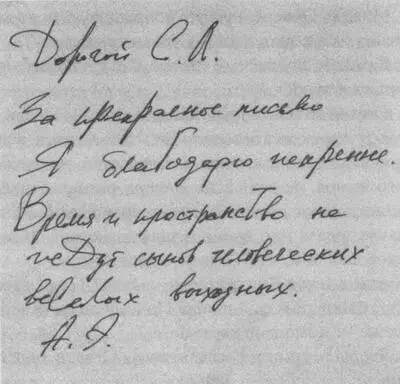 Дорогой С. Л.
За прекрасное письмо
Я благодарю искренне.
Время и пространство не
сынов человеческих
веселых выходных.
А.